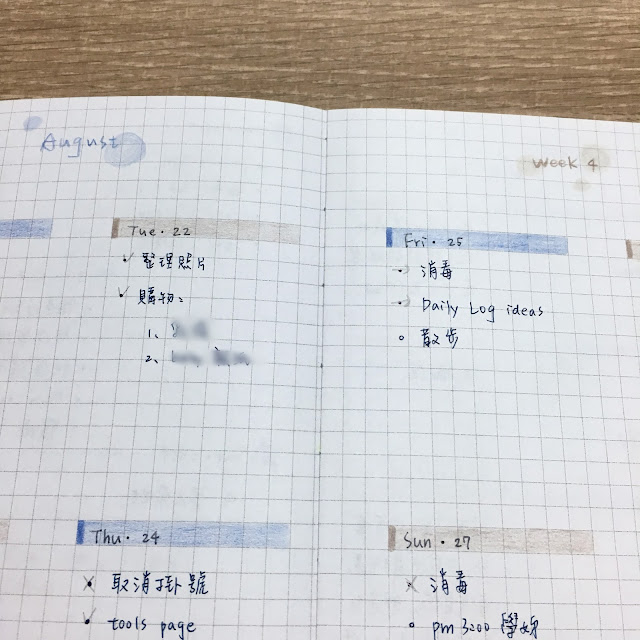 August
Tue. 22
整理照片
購物：
1、
2、
Thu. 24
取消掛號
tools page
Week 4
Fri. 25
消毒
Daily Log ideas
散步
Sun. 27
消毒
pm 3:00 學姊